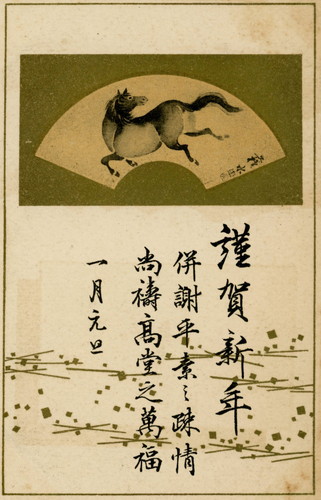 謹賀新年
併謝平素之疎情
尚禱高堂之萬福
一月元旦